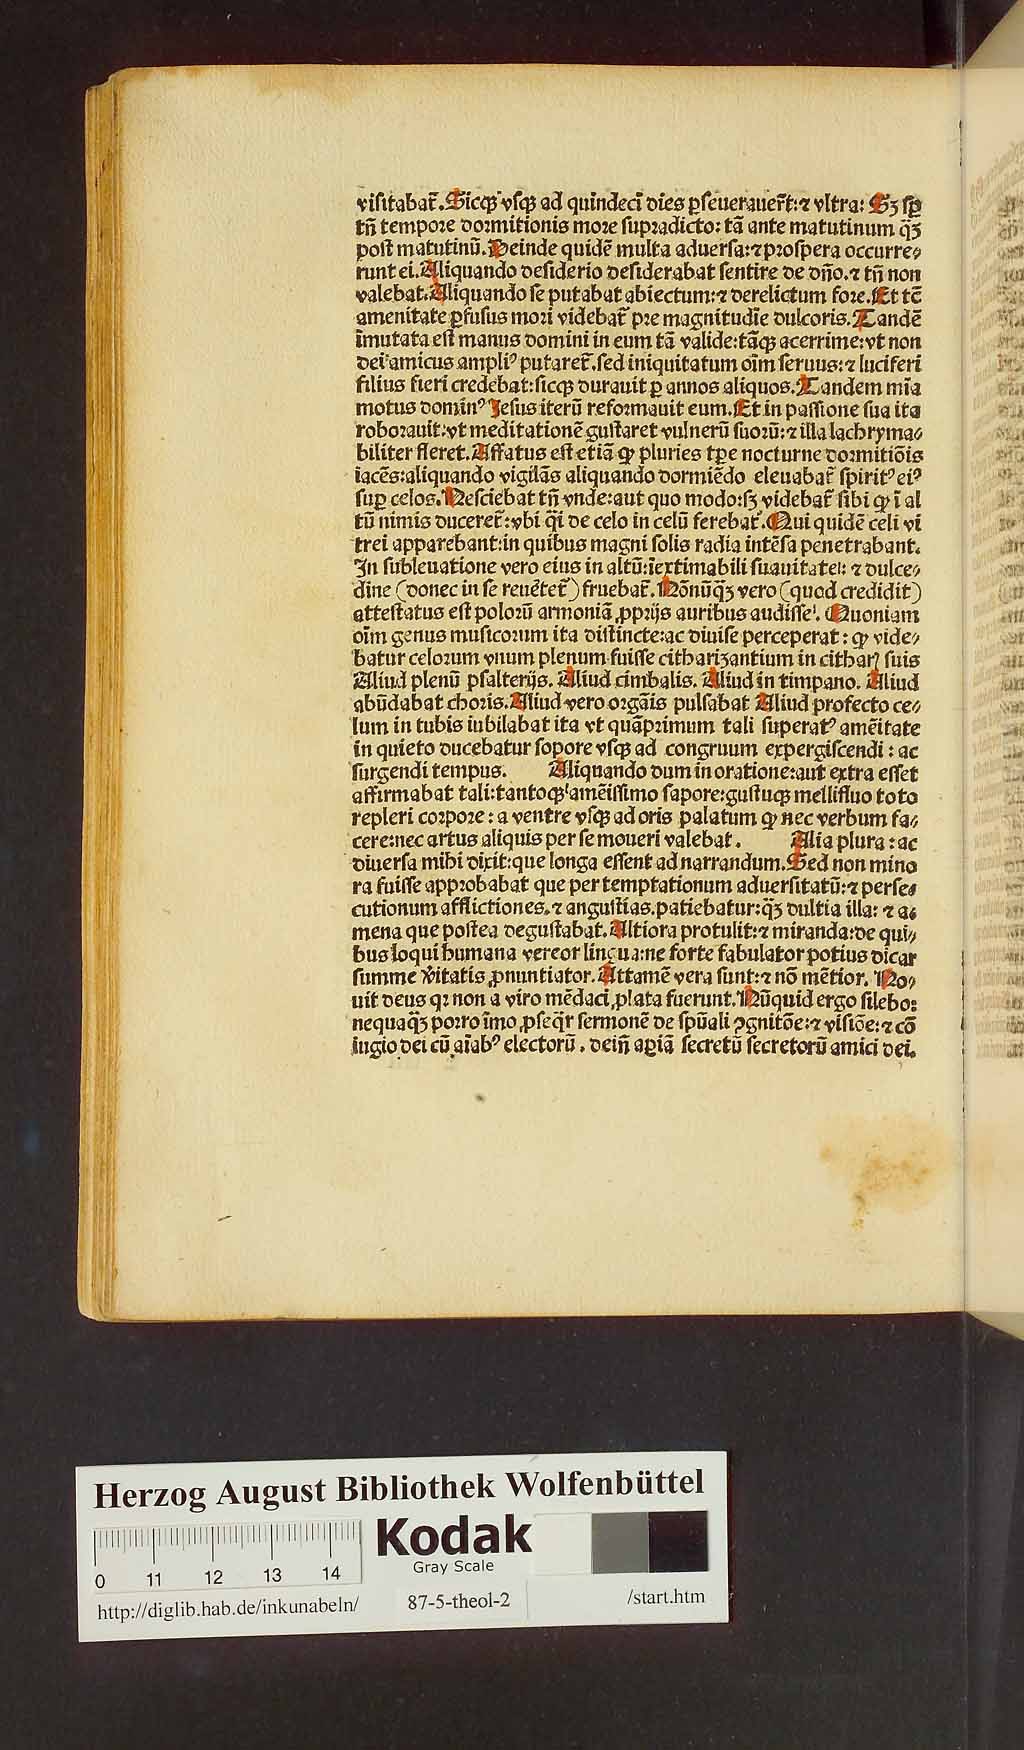 visitabat̃. Sicqꝫ vsqꝫ ad quindecī dies ꝑseuerauer̃t: ⁊ vltra: Sꝫ sꝑ
tñ tempore dormitionis more supradicto: tā ante matutinum q̃ꝫ
post matutinū. Deinde quidē multa aduersa: ⁊ prospera occurre-
runt ei. Aliquando desiderio desiderabat sentire de dño. ⁊ tñ non
valebat. Aliquando se putabat abiectum: ⁊ derelictum fore. Et tē
amenitate ꝑfusus mori videbat̃ pre magnitudīe dulcoris. Tandē
īmutata est manus domini in eum tā valide: tāqꝫ acerrime: vt non
dei amicus ampliꝰ putaret̃. sed iniquitatum oīm seruus: ⁊ luciferi
filius fieri credebat: sicqꝫ durauit ꝑ annos aliquos. Tandem mīa
motus dominꝰ Jesus iterū reformauit eum. Et in passione sua ita
roborauit: vt meditationē gustaret vulnerū suorū: ⁊ illa lachryma-
biliter fleret. Affatus est etiā ꝙ pluries tꝑe nocturne dormitiōis
iacēs: aliquando vigilās aliquando dormiēdo eleuabat̃ spiritꝰ eiꝰ
suꝑ celos. Nesciebat tñ vnde: aut quo modo: sꝫ videbat̃ sibi ꝙ ī al
tū nimis duceret̃: vbi q̃i de celo in celū ferebat̃. Qui quidē celi vi
trei apparebant: in quibus magni solis radia intēsa penetrabant.
In subleuatione vero eius in altū: īextimabili suauitate: ⁊ dulce-
dine (donec in se reuētet̃) fruebat̃. Nōnūq̃ꝫ vero (quod credidit)
attestatus est polorū armoniā ꝓprijs auribus audisse. Quoniam
oīm genus musicorum ita distincte: ac diuise perceperat: ꝙ vide-
batur celorum vnum plenum fuisse citharizantium in citharꝭ suis
Aliud plenū psalterijs. Aliud cimbalis. Aliud in timpano. Aliud
abūdabat choris. Aliud vero orgāis pulsabat Aliud profecto ce-
lum in tubis iubilabat ita vt quāprimum tali superatꝰ amēitate
in quieto ducebatur sopore vsqꝫ ad congruum expergiscendi: ac
surgendi tempus. Aliquando dum in oratione: aut extra esset
affirmabat tali: tantoqꝫ amēissimo sapore: gustuqꝫ mellifluo toto
repleri corpore: a ventre vsqꝫ ad oris palatum ꝙ nec verbum fa-
cere: nec artus aliquis per se moueri valebat. Alia plura: ac
diuersa mihi dixit: que longa essent ad narrandum. Sed non mino
ra fuisse approbabat que per temptationum aduersitatū: ⁊ perse-
cutionum afflictiones. ⁊ angustias. patiebatur: q̃ꝫ dultia illa: ⁊ a-
mena que postea degustabat. Altiora protulit: ⁊ miranda: de qui-
bus loqui humana vereor lingua: ne forte fabulator potius dicar
summe v̓itatis ꝓnuntiator. Attamē vera sunt: ⁊ nō mētior. No-
uit deus qꝛ non a viro mēdaci ꝓlata fuerunt. Nūquid ergo silebo:
nequaq̃ꝫ porro īmo ꝓseq̃r sermonē de spūali ꝯgnitōe: ⁊ visiōe: ⁊ cō
iugio dei cū aīabꝰ electorū. deiñ aꝑiā secretū secretorū amici dei.
Herzog August Bibliothek Wolfenbüttel
Kodak
Gray Scale
0 11 12 13 14
http://diglib.hab.de/inkunabeln/ 87-5-theol-2 /start.htm